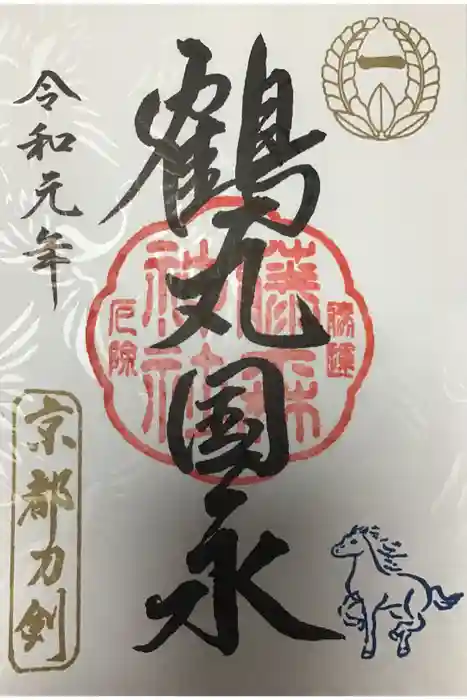 一
鶴丸国永
藤森
神社
勝運
厄除
令和元年
京都刀剣